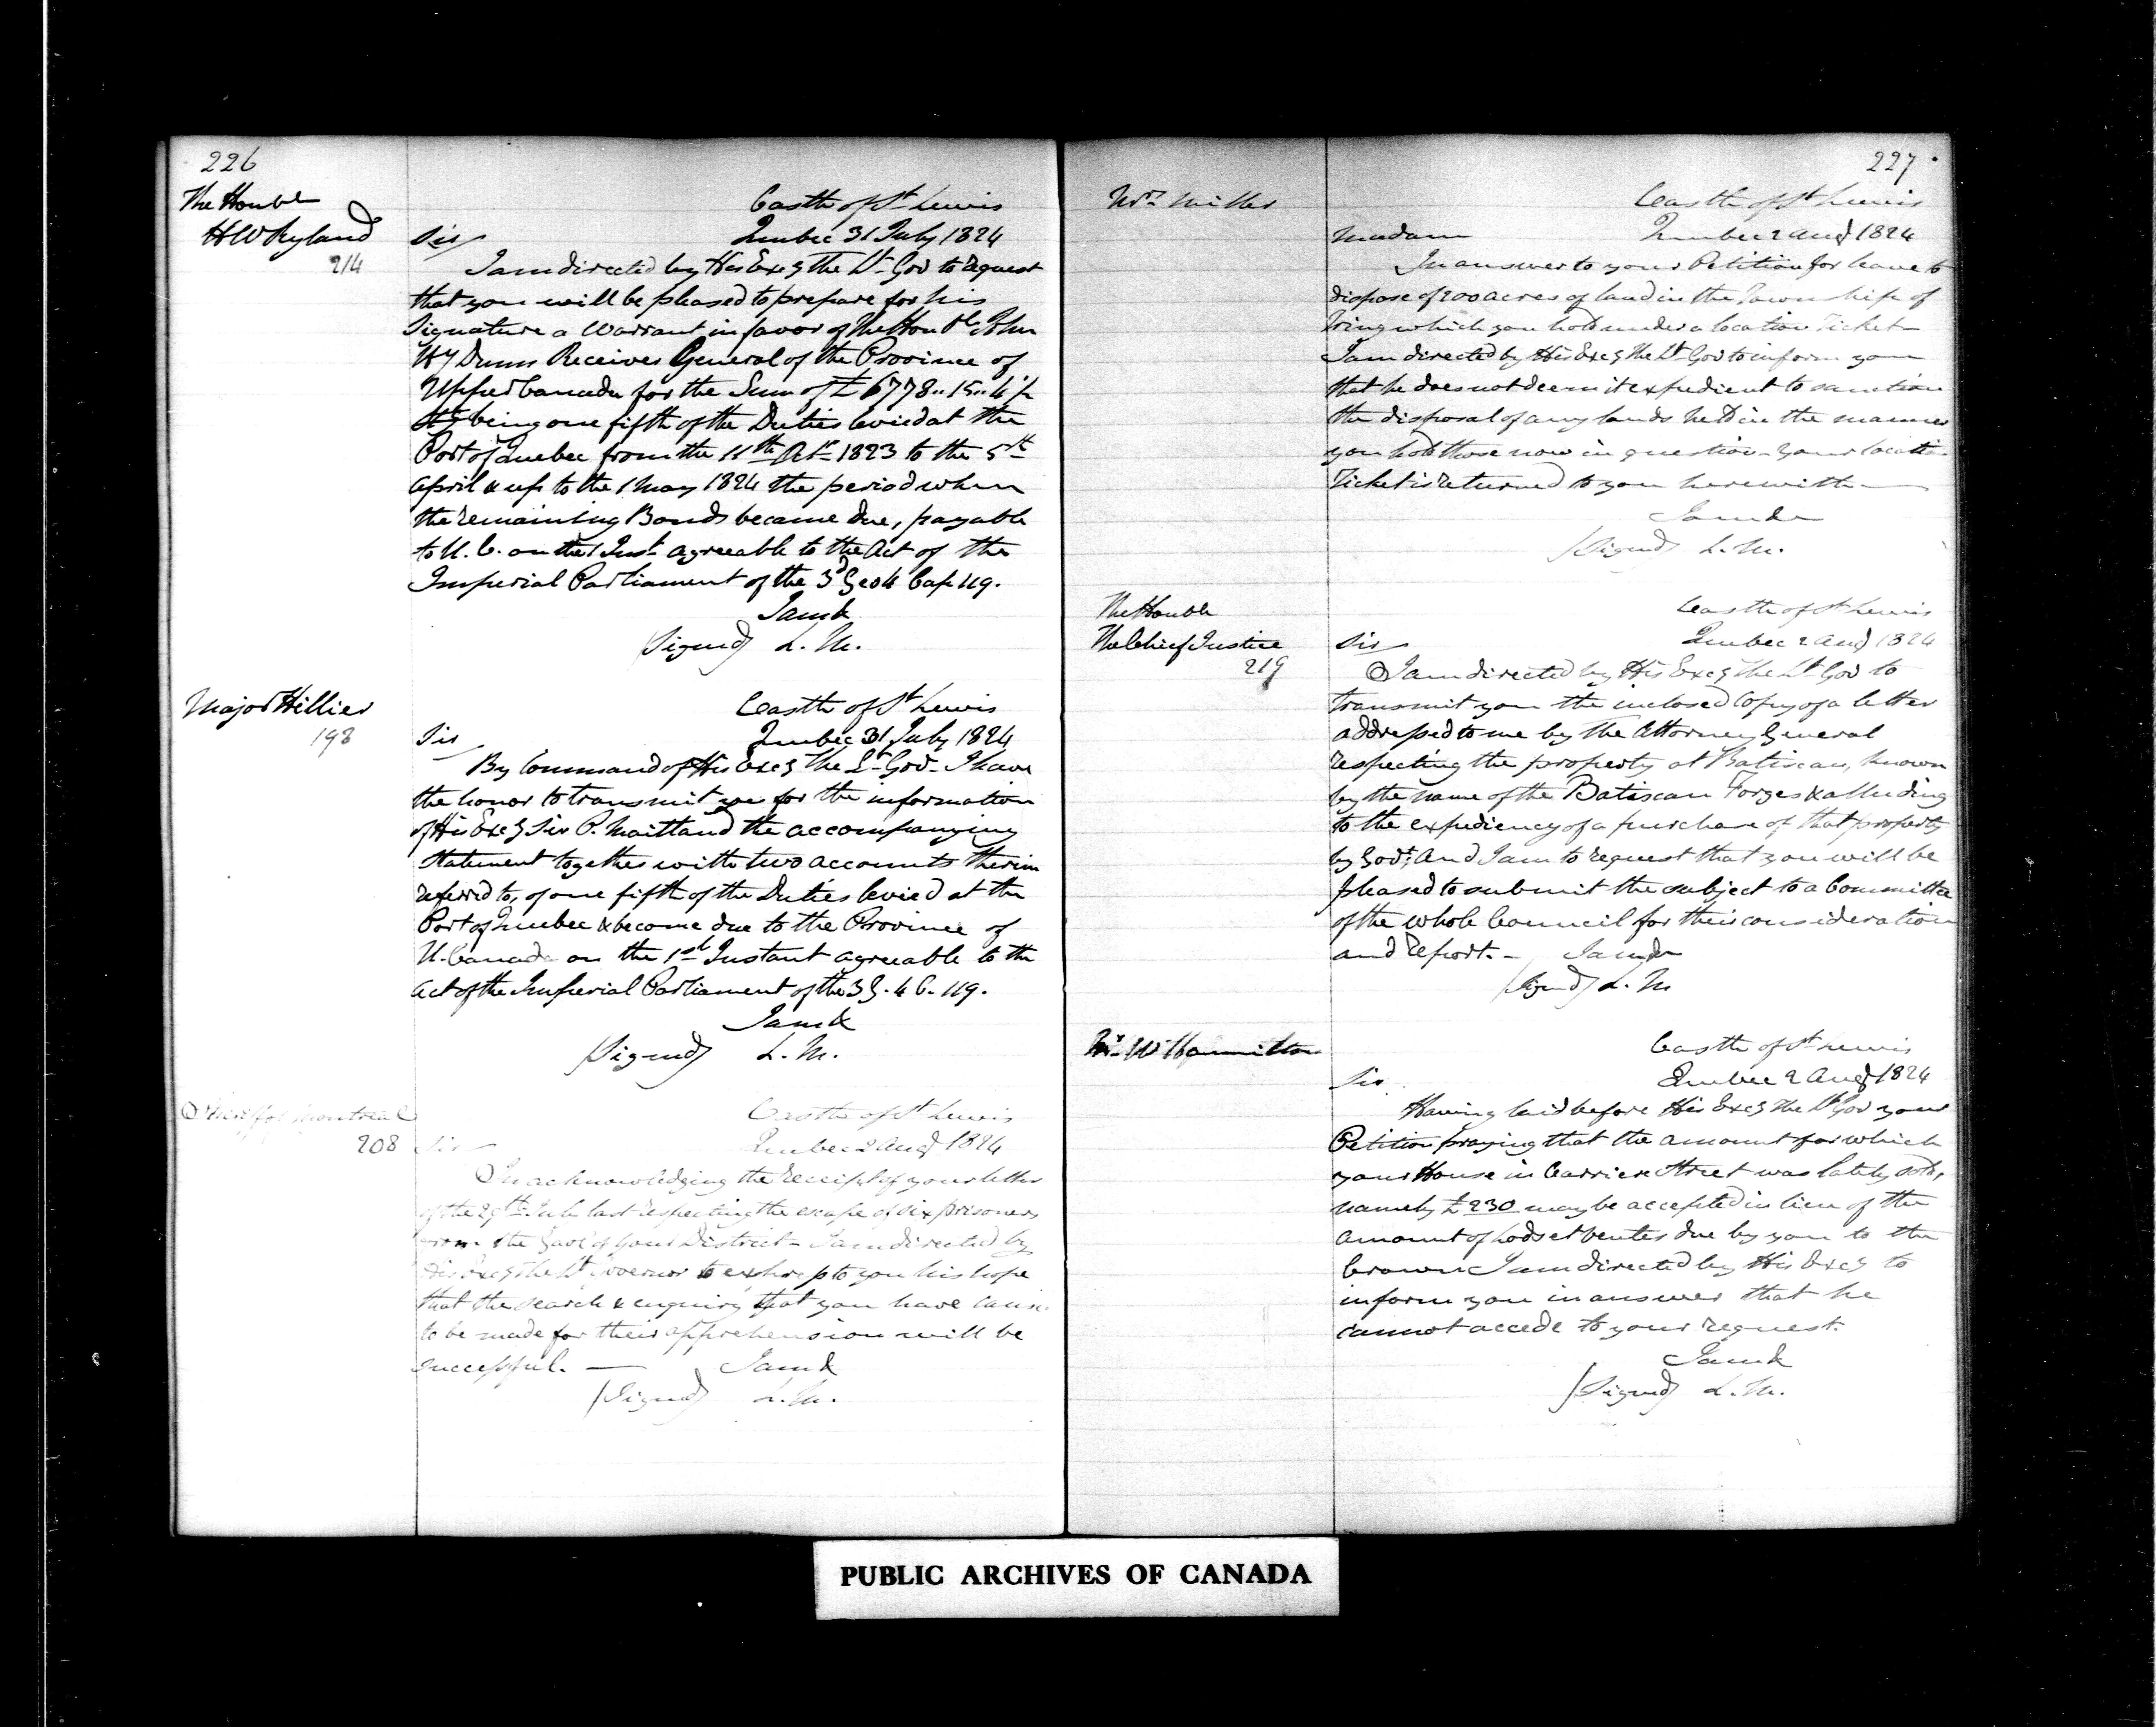 226
The Honble
H W Ryland
214
Castle of St Lewis
Quebec 31 July 1824
Sir/
I am directed by His Excy the Lt Gov to request
that you will be pleased to prepare for his
Signature a Warrant in favor of the Honble John
Hy Dunn Receiver General of the Province of
Upper Canada for the Sum of £6778..15..4½
Stg being one fifth of the Duties levied at the
Port of Quebec from the 11th Octr 1823 to the 5th
April & up to the 1 May 1824 the period when
the remaining Bonds became due, payable
to U. C. on the 1 Inst. agreeable to the Act of the
Imperial Parliament of the 3d Geo 4 Cap 119.
I am &
(Signed) L. M.
Major Hillier
198
Castle of St Lewis
Quebec 31 July 1824
Sir
By Command of His Excy the Lt Gov- I have
the honor to transmit you for the information
of His Excy Sir P. Maitland the accompanying
Statement together with two accounts therein
referred to, of one fifth of the Duties levied at the
Port of Quebec & become due to the Province of
U. Canada on the 1st Instant agreeable to the
Act of the Imperial Parliament of the 3 G. 4 C. 119.
I am &
(Signed) L. M.
Sheriff of Montreal
208
Castle of St Lewis
Quebec 2 Augt 1824
Sir
In acknowledging the receipt of your letter
of the 29th July last respecting the escape of six prisoners
from the Gaol of your District- I am directed by
His Excy the Lt Governor to express to you his hope
that the search & enquiry that you have cause
to be made for their apprehension will be
successful. — I am &
(Signed) L. M.
PUBLIC ARCHIVES OF CANADA
227
Mrs Miller
Castle of St Lewis
Quebec 2 Augt 1824
Madam
In answer to your Petition for leave to
dispose of 200 acres of land in the Township of
Tring which you hold under a location Ticket-
I am directed by His Excy the Lt Gov to inform you
that he does not deem it expedient to sanction
the disposal of any lands held in the manner
you hold those now in question- your location
Ticket is returned to you herewith—
I am &
(Signed) L. M.
The Honble
The Chief Justice
219
Castle of St Lewis
Quebec 2 Augt 1824
Sir
I am directed by His Excy the Lt Gov to
transmit you the inclosed Copy of a letter
addressed to me by the Attorney General
respecting the property at Batiscan, known
by the name of the Batiscan Forges & alluding
to the expediency of a purchase of that property
by Govt; And I am to request that you will be
pleased to submit the subject to a Committee
of the whole Council for their consideration
and report.- I am &
(Signed) L. M
Mr W Hammilton
Castle of St Lewis
Quebec 2 Augt 1824
Sir.
Having laid before His Excy the Lt Gov your
Petition praying that the amount for which
your House in Carriere Street was lately sold,
namely £230 may be accepted in lieu of the
amount of Lods et ventes due by you to the
Crown I am directed by His Excy to
inform you in answer that he
cannot accede to your request.
I am &
(Signed) L. M.